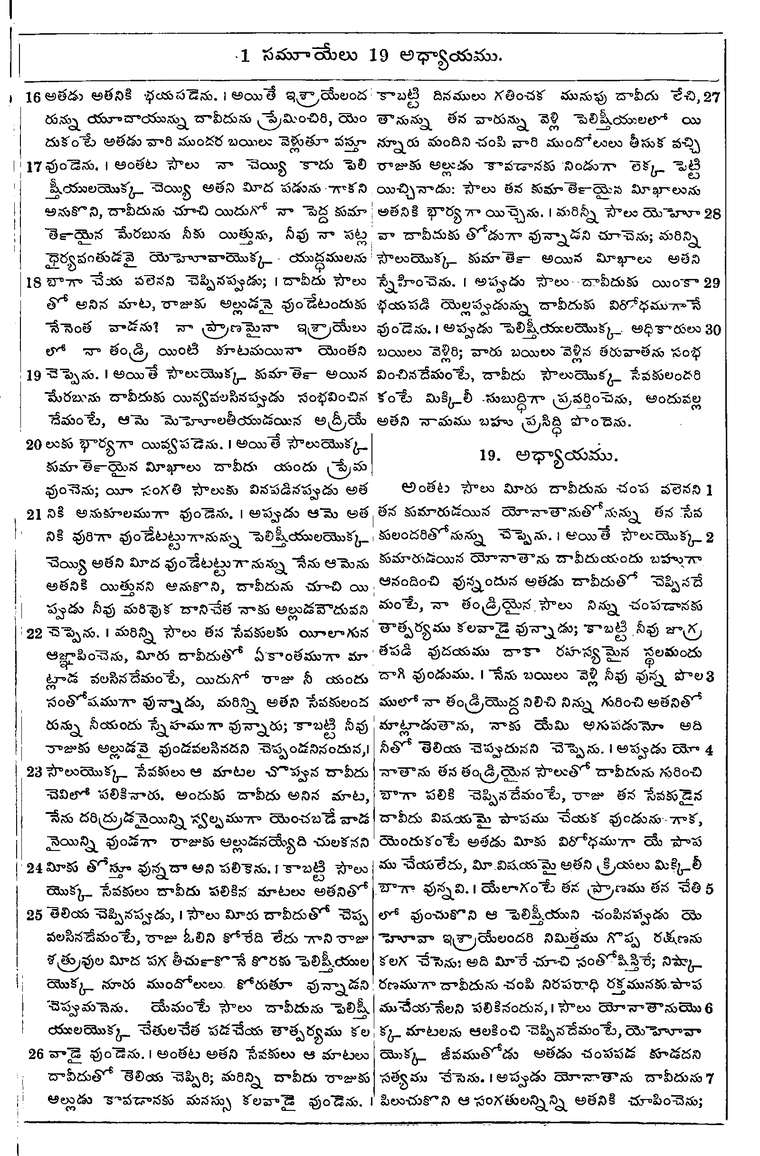 1 సమూయేలు 19 అధ్యాయము.
16 అతడు అతనికి భయపడెను. । అయితే ఇశ్రాయేలంద
రున్ను యూదాయున్ను దావీదును ప్రేమించిరి, యెం
దుకంటే అతడు వారి ముందర బయిలు వెళ్లుతూ వస్తూ
17 వుండెను. । అంతట సౌలు నా చెయ్యి కాదు పెలి
ష్తీయులయొక్క చెయ్యి అతని మీద పడును గాకని
అనుకొని, దావీదును చూచి యిదుగో నా పెద్ద కుమా
ర్తెయైన మేరబును నీకు యిత్తును, నీవు నా పట్ల
ధైర్యవంతుడవై యెహోవాయొక్క యుద్ధములను
18 బాగా చేయ వలెనని చెప్పినప్పుడు; । దావీదు సౌలు
తో అనిన మాట, రాజుకు అల్లుడనై వుండేటందుకు
నేనెంత వాడను? నా ప్రాణమైనా ఇశ్రాయేలు
లో నా తండ్రి యింటి కూటమయినా యెంతని
19 చెప్పెను. । అయితే సౌలుయొక్క కుమార్తె అయిన
మేరబును దావీదుకు యివ్వవలసినప్పుడు సంభవించిన
దేమంటే, ఆమె మెహోలతీయుడయిన అద్రీయే
20 లుకు భార్యగా యివ్వపడెను. । అయితే సౌలుయొక్క
కుమార్తెయైన మీఖాలు దావీదు యందు ప్రేమ
వుంచెను; యీ సంగతి సౌలుకు వినపడినప్పుడు అత
21 నికి అనుకూలముగా వుండెను. । అప్పుడు ఆమె అత
నికి వురిగా వుండేటట్టుగానున్ను పెలిష్తీయులయొక్క
చెయ్యి అతని మీద వుండేటట్టుగానున్ను నేను ఆమెను
అతనికి యిత్తునని అనుకొని, దావీదును చూచి యి
ప్పుడు నీవు మరివొక దానిచేత నాకు అల్లుడవౌదువని
22 చెప్పెను. । మరిన్ని సౌలు తన సేవకులకు యీలాగున
ఆజ్ఞాపించెను, మీరు దావీదుతో ఏకాంతముగా మా
ట్లాడ వలసినదేమంటే, యిదుగో రాజు నీ యందు
సంతోషముగా వున్నాడు, మరిన్ని అతని సేవకులంద
రున్ను నీయందు స్నేహముగా వున్నారు; కాబట్టి నీవు
రాజుకు అల్లుడవై వుండవలసినదని చెప్పండనినందున,।
23 సౌలుయొక్క సేవకులు ఆ మాటల చొప్పున దావీదు
చెవిలో పలికినారు. అందుకు దావీదు అనిన మాట,
నేను దరిద్రుడనైయిన్ని స్వల్పముగా యెంచబడే వాడ
నైయిన్ని వుండగా రాజుకు అల్లుడనయ్యేది చులకనని
24 మీకు తోస్తూ వున్నదా అని పలికెను. । కాబట్టి సౌలు
యొక్క సేవకులు దావీదు పలికిన మాటలు అతనితో
25 తెలియ చెప్పినప్పుడు, । సౌలు మీరు దావీదుతో చెప్ప
వలసినదేమంటే, రాజు ఓలిని కోరేది లేదు గాని రాజు
శత్రువుల మీద పగ తీర్చుకొనే కొరకు పెలిష్తీయుల
యొక్క నూరు ముందోలులు కోరుతూ వున్నాడని
చెప్పుమనెను. యేమంటే సౌలు దావీదును పెలిష్తీ
యులయొక్క చేతులచేత పడచేయ తాత్పర్యము కల
26 వాడై వుండెను. । అంతట అతని సేవకులు ఆ మాటలు
దావీదుతో తెలియ చెప్పిరి; మరిన్ని దావీదు రాజుకు
అల్లుడు కావడానకు మనస్సు కలవాడై వుండెను. ।
కాబట్టి దినములు గతించక మునుపు దావీదు లేచి, 27
తానున్ను తన వారున్ను వెళ్లి పెలిష్తీయులలో యి
న్నూరు మందిని చంపి వారి ముందోలులు తీసుక వచ్చి
రాజుకు అల్లుడు కావడానకు నిండుగా లెక్క పెట్టి
యిచ్చినాడు: సౌలు తన కుమార్తెయైన మీఖాలును
అతనికి భార్యగా యిచ్చెను. । మరిన్ని సౌలు యెహో 28
వా దావీదుకు తోడుగా వున్నాడని చూచెను; మరిన్ని
సౌలుయొక్క కుమార్తె అయిన మీఖాలు అతని
స్నేహించెను. । అప్పుడు సౌలు దావీదుకు యింకా 29
భయపడి యెల్లప్పుడున్ను దావీదుకు విరోధముగానే
వుండెను. । అప్పుడు పెలిష్తీయులయొక్క అధికారులు 30
బయిలు వెళ్లిరి; వారు బయిలు వెళ్లిన తరువాతను సంభ
వించినదేమంటే, దావీదు సౌలుయొక్క సేవకులందరి
కంటే మిక్కిలీ సుబుద్ధిగా ప్రవర్తించెను, అందువల్ల
అతని నామము బహు ప్రసిద్ధి పొందెను.
19. అధ్యాయము.
అంతట సౌలు మీరు దావీదును చంప వలెనని 1
తన కుమారుడయిన యోనాతానుతోనున్ను తన సేవ
కులందరితోనున్ను చెప్పెను. । అయితే సౌలుయొక్క 2
కుమారుడయిన యోనాతాను దావీదుయందు బహుగా
ఆనందించి వున్నందున అతడు దావీదుతో చెప్పినదే
మంటే, నా తండ్రియైన సౌలు నిన్ను చంపడానకు
తాత్పర్యము కలవాడై వున్నాడు; కాబట్టి నీవు జాగ్ర
తపడి వుదయము దాకా రహస్యమైన స్థలమందు
దాగి వుండుము. । నేను బయిలు వెళ్లి నీవు వున్న పొల 3
ములో నా తండ్రియొద్ద నిలిచి నిన్ను గురించి అతనితో
మాట్లాడుతాను, నాకు యేమి అగుపడుమో అది
నీతో తెలియ చెప్పుదునని చెప్పెను. । అప్పుడు యో 4
నాతాను తన తండ్రియైన సౌలుతో దావీదును గురించి
బాగా పలికి చెప్పినదేమంటే, రాజు తన సేవకుడైన
దావీదు విషయమై పాపము చేయక వుండును గాక,
యెందుకంటే అతడు మీకు విరోధముగా యే పాప
ము చేయలేదు, మీ విషయమై అతని క్రియలు మిక్కిలీ
బాగా వున్నవి. । యేలాగంటే తన ప్రాణము తన చేతి 5
లో వుంచుకొని ఆ పెలిష్తీయుని చంపినప్పుడు యె
హోవా ఇశ్రాయేలందరి నిమిత్తము గొప్ప రక్షణను
కలగ చేసెను: అది మీరే చూచి సంతోషిస్తిరే; నిష్కా
రణముగా దావీదును చంపి నిరపరాధి రక్తమునకు పాప
ము చేయనేలని పలికినందున, । సౌలు యోనాతానుయొ 6
క్క మాటలను ఆలకించి చెప్పినదేమంటే, యెహోవా
యొక్క జీవముతోడు అతడు చంపపడ కూడదని
సత్యము చేసెను. । అప్పుడు యోనాతాను దావీదును 7
పిలుచుకొని ఆ సంగతులన్నిన్ని అతనికి చూపించెను;